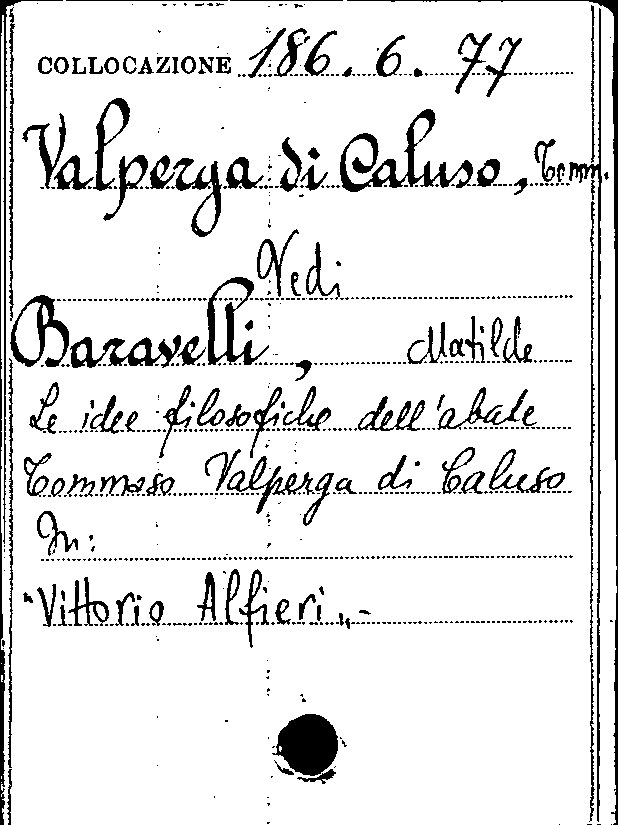 COLLOCAZIONE 186. 6. 77
Valperga di Caluso, Tomm.
Vedi
Baravelli, Matilde
Le idee filosofiche dell'abate
Tommaso Valperga di Caluso
In:
"Vittorio Alfieri„.-